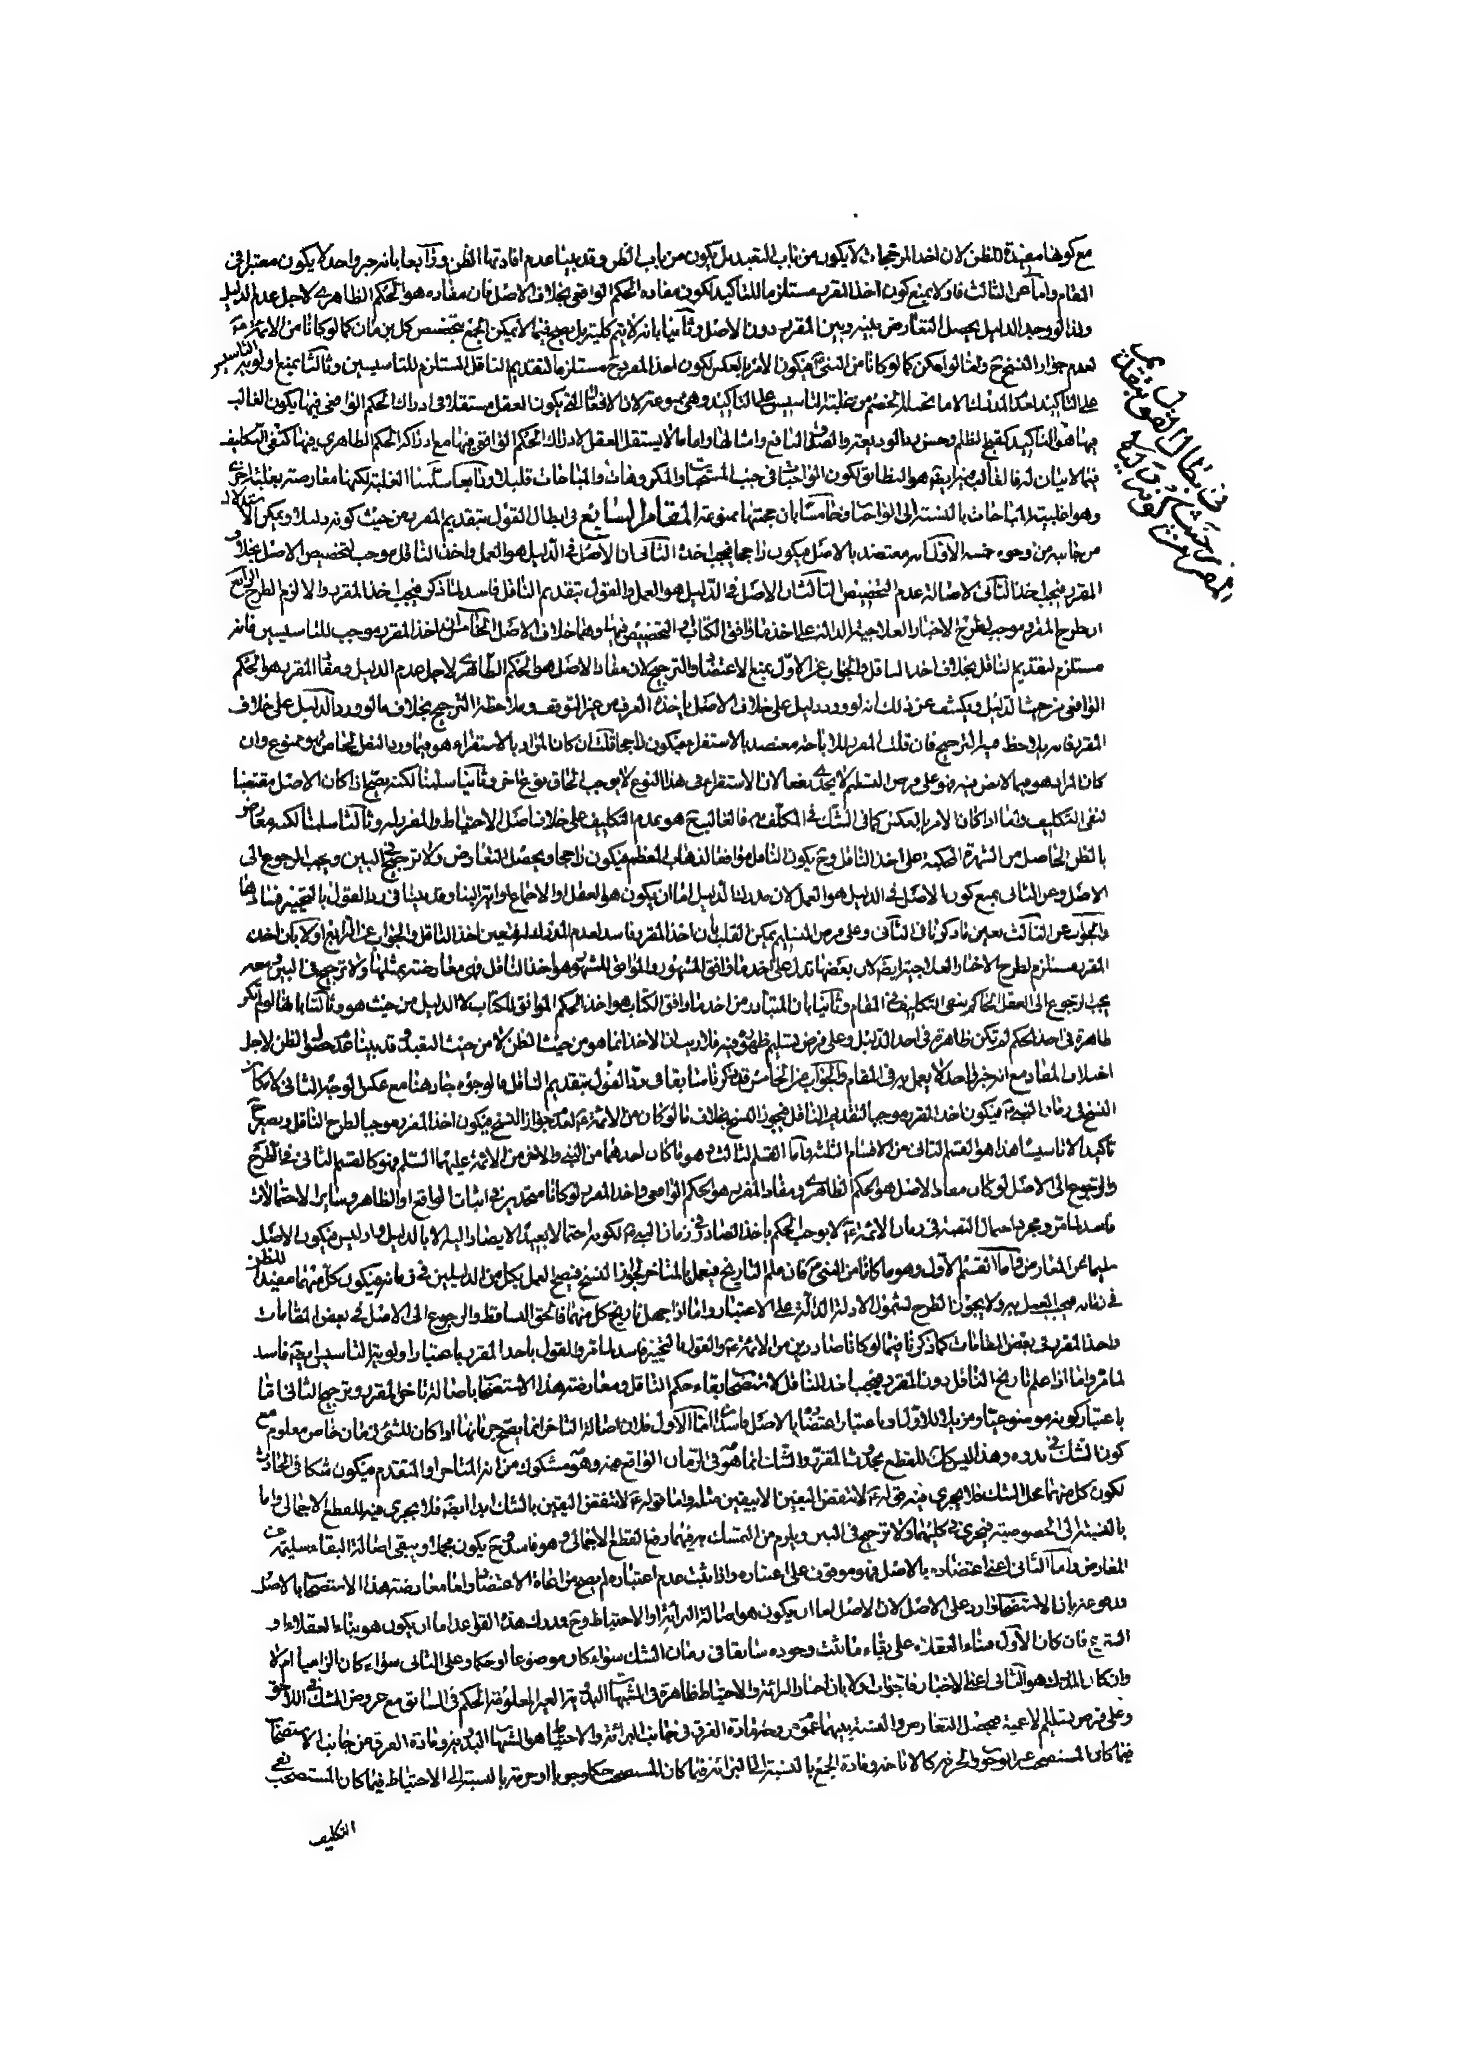 مع كونها مفيدة للظن لان اخذ المرجحات لا يكون من باب التعبد بل يكون من باب الظن و قد بينا عدم افادتها الظن و رابعا بانه خبر واحد لا يكون معتبرا فى
المقام واما عن الثالث فاولا بمنع كون اخذ المقرر مستلزما للتاكيد لكون مفاده الحكم الواقعى بخلاف الاصل فان مفاده هو الحكم الظاهرى لاجل عدم الدليل
ولذا لو وجد الدليل يحصل التعارض بينه وبين المقرر دون الاصل وثانيا بانه لا يتم كلية بل يصح فيما لا يمكن الجمع بتخصيص كل بزمان كما لو كانا من الائمة ع
لعدم جواز النسخ ح واما لو امكن كما لو كانا من النبى ص فيكون الامر بالعكس لكون اخذ المقرر ح مستلزما لتقديم الناقل المستلزم للتاسيسين وثالثا بمنع اولوية التاسيس
على التاكيد
فيها هو التاكيد كقبح الظلم وحسن رد الوديعة والصدق النافع وامثالها واما ما لا يستقل العقل لادراك الحكم الواقعى فيها مع ادراكه الحكم الظاهرى فيها كنفى التكليف
فيما لا بيان له فالغالب فيه ايضا هو التطابق لكون الواجبات فى جنب المستحبات والمكروهات والمباحات قليلة ورابعا سلمنا الغلبة لكنها معارضة بغلبة اخرى
وهو اغلبية المباحات بالنسبة الى الواجبات وخامسا بان حجيتها ممنوعة المقام السابع فى ابطال القول بتقديم المقرر من حيث كونه دليلا ويمكن الاستدلال
من جانبه من وجوه خمسة الاول انه معتضد بالاصل فيكون راجحا فيجب اخذه الثانى ان الاصل فى الدليل هو العمل واخذ الناقل موجب لتخصيص الاصل بخلاف
المقرر فيجب اخذ الثانى لاصالة عدم التخصيص الثالث ان الاصل فى الدليل هو العمل والقول بتقديم الناقل فاسد لما ذكر فيجب اخذ المقرر والا لزم الطرح الرابع
ان طرح المقرر موجب لطرح الاخبار العلاجية الدالة على اخذ ما وافق الكتاب و التخصيص فيها وهما خلاف الاصل الخامس ان اخذ المقرر موجب للتاسيسين فانه
مستلزم لتقديم الناقل بخلاف اخذ الناقل والجواب عن الاول بمنع الاعتضاد والترجيح لان مفاد الاصل هو الحكم الظاهرى لاجل عدم الدليل ومفاد المقرر هو الحكم
الواقعى من حيث الدليل ويكشف عن ذلك انه لو ورد دليل على خلاف الاصل ياخذه العرف من غير التوقف وملاحظة الترجيح بخلاف ما لو ورد الدليل على خلاف
المقرر فانه يلاحظ فيه الترجيح فان قلت المقرر للاباحة معتضد بالاستقراء فيكون راجحا قلت ان كان المراد بالاستقراء هو فيما ورد النقل الخاص فهو ممنوع وان
كان المراد هو فيما لا نص فيه فهو على فرض التسليم لا يجدى نفعا لان الاستقراء فى هذا النوع لا يوجب الحاق نوع اخر وثانيا سلمنا لكنه يصح اذا كان الاصل مقتضيا
لنفى التكليف واما اذا كان الامر بالعكس كما فى الشك فى المكلف به فالغالب ح هو عدم التكليف على خلاف اصل الاحتياط والمقرر له وثالثا سلمنا لكنه معارض
بالظن الحاصل من الشهرة المحكية على اخذ الناقل وح يكون الناقل موافقا لذهاب المعظم فيكون راجحا ويحصل التعارض ولا ترجيح فى البين ويجب الرجوع الى
الاصل وعن الثانى بمنع كون الاصل فى الدليل هو العمل لان مدرك الدليل اما ان يكون هو العقل او الاجماع او اية النبا وقد بينا فى رد القول بالتخيير فسادها
والجواب عن الثالث بعين ما ذكرنا فى الثانى وعلى فرض التسليم يمكن القلب بان اخذ المقرر فاسد لعدم المقتضى له فتعين اخذ الناقل والجواب عن الرابع اولا بان اخذ
المقرر مستلزم لطرح الاخبار العلاجية ايضا لان بعضها تدل على اخذ ما وافق المشهور والموافق للمشهور هو اخذ الناقل فهى معارضة بمثلها ولا ترجيح فى البين ومعه
يجب الرجوع الى العقل الحاكم بنفى التكليف فى المقام وثانيا بان المتبادر من اخذ ما وافق الكتاب هو اخذ الحكم الموافق للكتاب لا الدليل من حيث هو وثالثا بانها لو لم تكن
ظاهرة فى اخذ الحكم لم تكن ظاهرة فى اخذ الدليل وعلى فرض تسليم ظهوره فيه فلا ريب ان الاخذ انما هو من حيث الظن لا من حيث التعبد وقد بينا عدم حصول الظن لاجل
اختلاف المفاد مع انه خبر واحد لا يعمل به فى المقام والجواب عن الخامس قد ذكرنا سابقا فى رد القول بتقديم الناقل
النسخ فى زمان النبى ص فيكون اخذ المقرر موجبا لتقديم الناقل فيجوز النسخ بخلاف ما لو كان من الائمة ع لعدم جواز النسخ فيكون اخذ المقرر موجبا لطرح الناقل ويصير ح
تاكيدا لا تاسيسا هذا هو القسم الثانى من الاقسام الثلثة واما القسم الثالث وهو ما كان احدهما من النبى والاخر من الائمة عليهما السلم فهو كالقسم الثانى فى الطرح
والرجوع الى الاصل لو كان مفاد الاصل هو الحكم الظاهرى ومفاد المقرر هو الحكم الواقعى واخذ المقرر لو كانا متحدين فى اثبات الواقع او الظاهر وساير الاحتمالات
فاسد لما مر ومجرد احتمال التقية فى زمان الائمة ع لا يوجب الحكم باخذ الصادر فى زمان النبى ص لكونه احتمالا بعيدا لا يصار اليه الا بالدليل واذ ليس فيكون الاصل
سليما عن المعارض واما القسم الاول وهو ما كانا من النبى ص فان علم التاريخ فيعمل بالمتاخر لجواز النسخ فيصح العمل بكل من الدليلين فى زمانه فيكون كل منهما مفيدا للظن
فى زمانه فيجب العمل به ولا يجوز الطرح لشمول الادلة الدالة على الاعتبار واما اذا جهل تاريخ كل منهما فالحق التساقط والرجوع الى الاصل فى بعض المقامات
واخذ المقرر فى بعض المقامات كما ذكرنا فيما لو كانا صادرين من الائمة ع والقول بالتخيير فاسد لما مر والقول باخذ المقرر باعتبار اولوية التاسيس ايضا فاسد
لما مر واما اذا علم تاريخ الناقل دون المقرر فيجب اخذ الناقل لاستصحاب بقاء حكم الناقل ومعارضته هذا الاستصحاب باصالة تاخر المقرر وترجيح الثانى اما
باعتبار كونه موضوعيا ومزيلا للاول او باعتبار اعتضاده بالاصل فاسد اما الاول فلان اصالة التاخر انما يصح جريانها اذا كان للشئ زمان خاص معلوم مع
كون الشك فى بدوه وهذا ليس كذلك للقطع بحدوث المقرر والشك انما هو فى الزمان الواقع فيه وهو مشكوك من انه المتاخر او المتقدم فيكون شكا فى الحادث
لكون كل منهما محل الشك فلا يجرى فيه قوله ع لا تنقض اليقين الا بيقين مثله واما قوله ع لا تنقض اليقين بالشك ابدا ايضا فلا يجرى فيه للقطع الاجمالى واما
بالنسبة الى الخصوصية فيجرى فى كليهما ولا ترجيح فى البين ويلزم من التمسك به فيهما رفع القطع الاجمالى وهو فاسد وح يكون مجملا ويبقى اصالة البقاء سليمة عن
المعارض واما الثانى اعنى اعتضاده بالاصل فهو موقوف على اعتباره واذا ثبت عدم اعتباره لم يصح
مدفوعة بان الاستصحاب وارد على الاصل لان الاصل اما ان يكون هو اصالة البرائة او الاحتياط وح مدرك هذه القواعد اما ان يكون هو بناء العقلاء او
الشرع فان كان الاول فبناء العقلاء على بقاء ما ثبت وجوده سابقا فى زمان الشك سواء كان موضوعا او حكما وعلى الثانى سواء كان الزاميا ام لا
وان كان المدرك هو الثانى اعنى الاخبار فالجواب اولا بان اخبار البرائة والاحتياط ظاهرة فى الشبهات البدوية الغير المعلومة الحكم فى السابق مع عروض الشك فى اللاحق
وعلى فرض تسليم الاعمية فيحصل التعارض والنسبة بينهما عموم من وجه فمادة الفرق فى جانب البرائة والاحتياط هو الشبهات البدوية ومادة الفرق من جانب الاستصحاب
فيما كان المستصحب غير الوجوب والحرمة كالاباحة ومادة الجمع بالنسبة الى البرائة فيما كان المستصحب حكما وجوبيا او حرمة بالنسبة الى الاحتياط فيما كان المستصحب نفى
التكليف
فى ابطال القول بتقديم
المقرر من حيث كونه دليلا